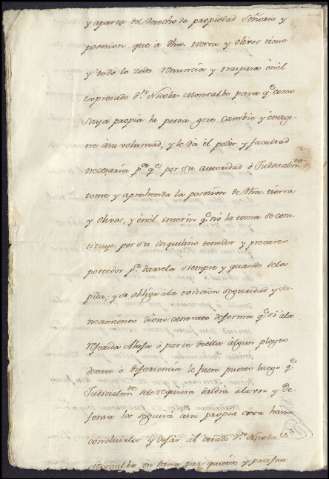 y aparto del derecho de propiedad Señorio y
posesion que a dhas tierra y olivos tiene
y todo lo cedo renuncia y traspasa en el
expresado Dn. Nicolas para qe. como
suya propia la posea goce cambie y enage-
ne a su voluntad, y le da el poder y facultad
necesaria pa. qe. por su autoridad ó Judicialmte.
tome y aprehenda la posesion de dha tierra
y olivos, y en el interin qe. no la toma se cons-
tituye por su inquilino tenedor y precario
poseedor pa. darsela siempre y quando se la
pida; y se obliga a la eviccion seguridad y sa-
neamiento de esta venta de forma qe. si a la
referida o parte de ella algun pleyto
demanda o le fuere puesto luego qe.
Judicialmte. sea requerida saldra a la voz y de-
fensa los seguira a su propia costa hasta
concluirlos y dejar al citado Dn. Nicolas
en quieta y pacifica